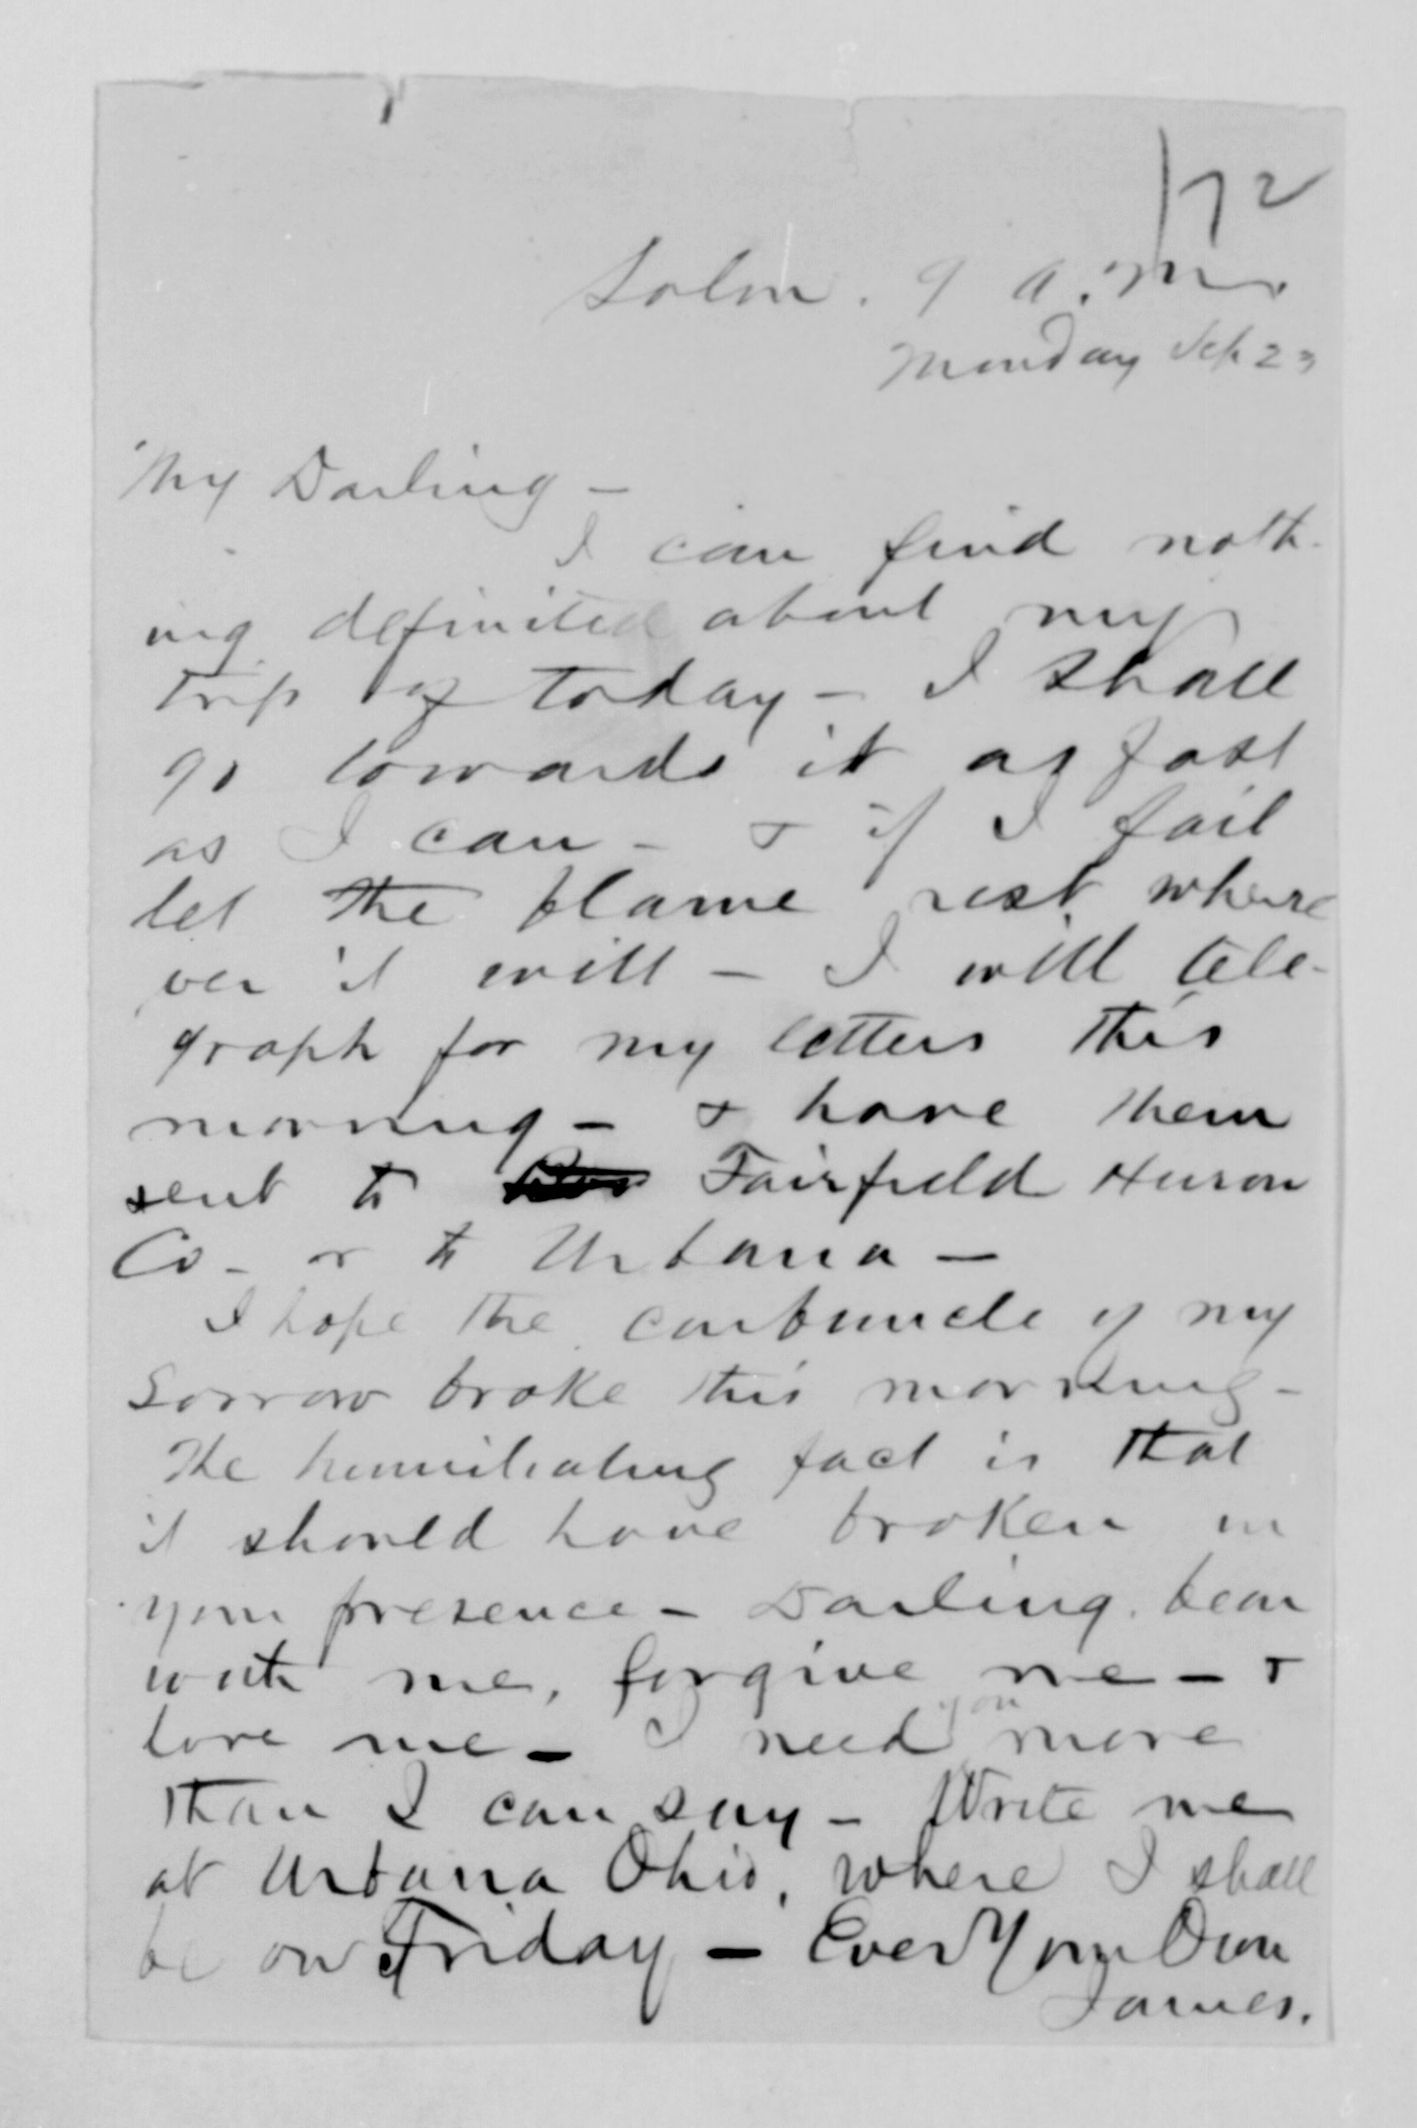 172
Solon. 9 a.m.
Monday Sep 23
My Darling –
I can find noth-
ing definite about my
trip of today – I shall
go towards it as fast
as I can – & if I fail
let the blame rest where
ver it will – I will tele-
graph for my letters this
morning – & have them
sent to Fairfield Huron
Co – or to Urbana –
I hope the carbuncle of my
sorrow broke this morning –
The humiliating fact is that
it should have broken in
your presence – Darling. bear
with me, forgive me – &
love me – I need you more
than I can say – Write me
at Urbana Ohio, where I shall
be on Friday – Ever Your Own
James.